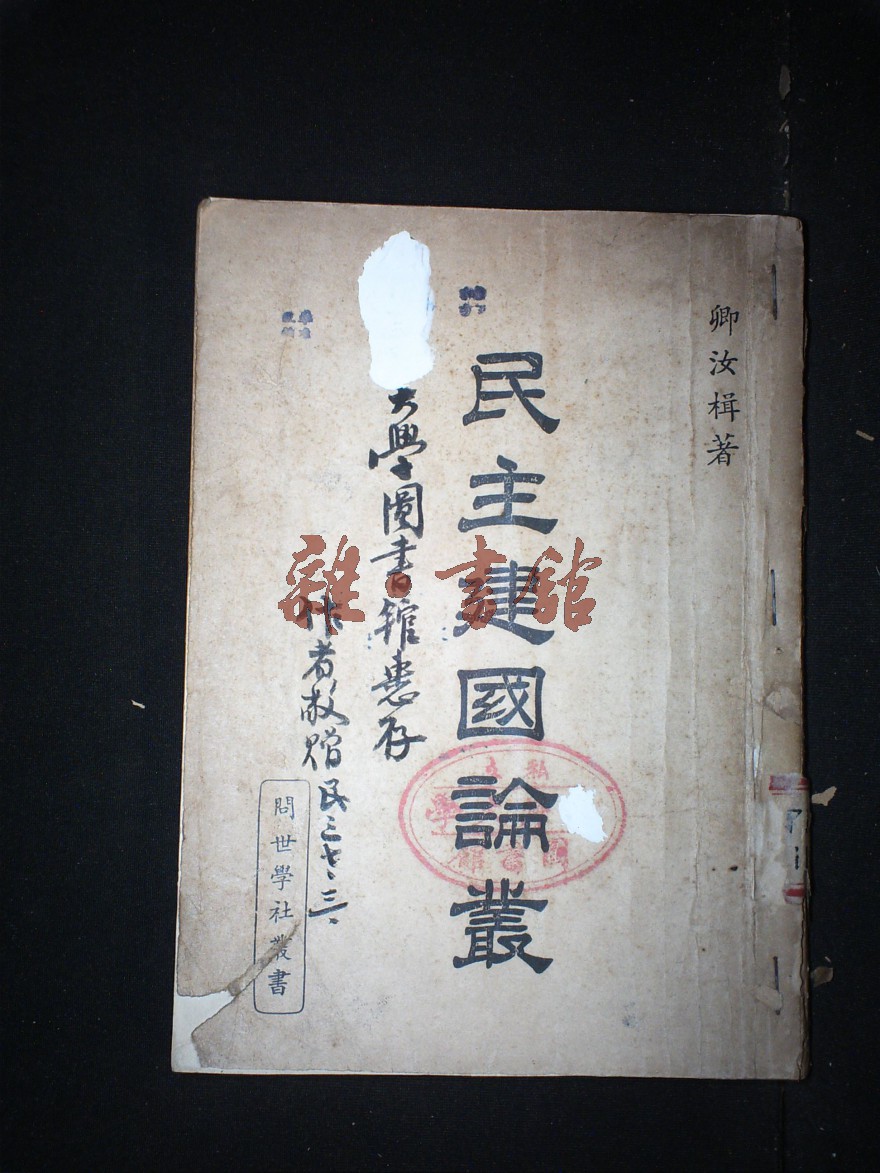 卿汝楫著
民主建國論叢
大學圖書館惠存
作者敬贈 民三七、三、
問世學社叢書
私立
學
圖書館
雜·書館